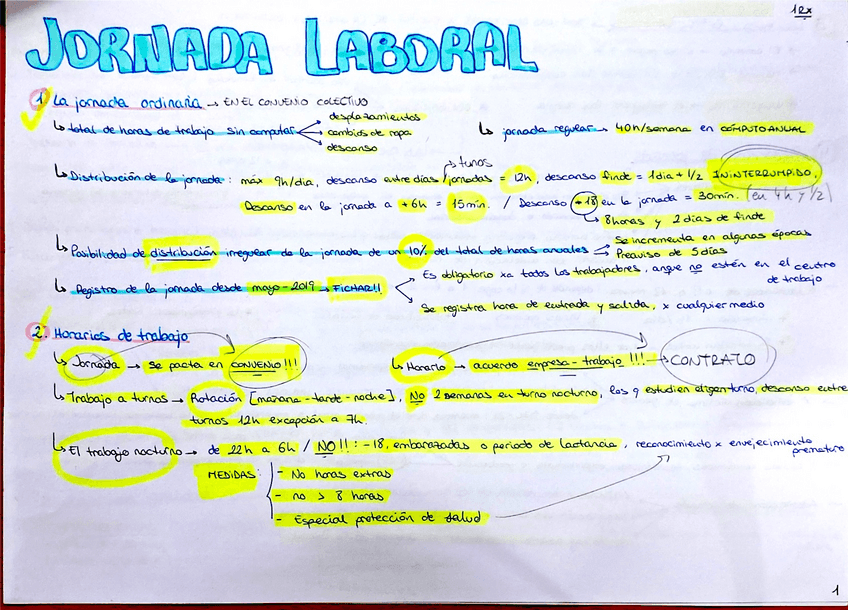 1Rx
JORNADA LABORAL
1. La jornada ordinaria → EN EL CONVENIO COLECTIVO
↳ total de horas de trabajo sin computar
desplazamientos
cambios de ropa
descanso
↳ jornada regular → 40h/semana en CÓMPUTO ANUAL
↳ Distribución de la jornada: máx 9h/día, descanso entre días/jornadas = 12h, descanso finde = 1día + 1/2 ININTERRUMPIDO.
→ turnos
Descanso en la jornada a +6h = 15min. / Descanso -18 en la jornada = 30min. (en 4h y 1/2)
↳ 8horas y 2 días de finde
↳ Posibilidad de distribución irregular de la jornada de un 10% del total de horas anuales
Se incrementa en algunas épocas
Preaviso de 5 días
↳ Registro de la jornada desde mayo-2019 → FICHAR!!
Es obligatorio xa todos los trabajadores, anque no estén en el centro de trabajo
Se registra hora de entrada y salida, x cualquier medio
2. Horarios de trabajo
↳ Jornada → se pacta en CONVENIO!!!
↳ Horario → acuerdo empresa-trabajo!!! → CONTRATO
↳ Trabajo a turnos → Rotación [mañana-tarde-noche], NO 2 semanas en turno nocturno, los q estudien eligen turno, descanso entre
turnos 12h excepción a 7h.
↳ El trabajo nocturno → de 22h a 6h / NO!!: -18, embarazadas o periodo de lactancia, reconocimiento x envejecimiento prematuro
MEDIDAS:
- No horas extras
- no > 8 horas
- Especial protección de salud
1